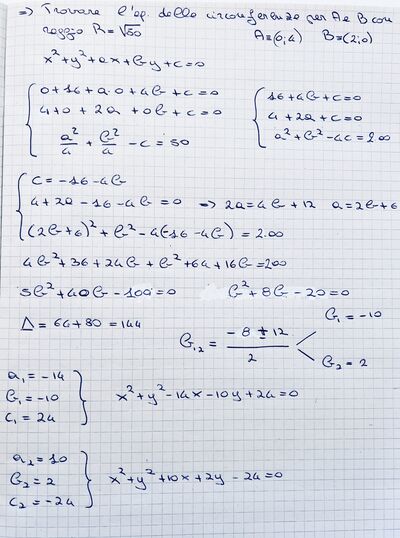 => Trovare l'eq. della circonferenza per A e B con
raggio R = √50 A≡(0,4) B≡(2,0)
x²+y²+ax+by+c=0
0+16+a·0+4b+c=0
4+0+2a+0b+c=0
a²/4 + b²/4 - c = 50
16+4b+c=0
4+2a+c=0
a²+b²-4c=200
c = -16-4b
4+2a-16-4b=0 => 2a=4b+12 a=2b+6
(2b+6)²+b²-4(-16-4b)=200
4b²+36+24b+b²+64+16b=200
5b²+40b-100=0 b²+8b-20=0
Δ = 64+80=144
b₁,₂ = (-8±12)/2
b₁=-10
b₂=2
a₁=-14
b₁=-10
c₁=24
x²+y²-14x-10y+24=0
a₂=10
b₂=2
c₂=-24
x²+y²+10x+2y-24=0